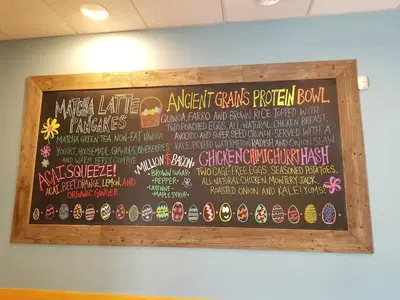 MATCHA LATTE
PANCAKES
MATCHA GREEN TEA, NON-FAT VANILLA
YOGURT, HOUSEMADE GRANOLA, BLUEBERRIES
AND WARM BERRY COMPOTE
AÇAI SQUEEZE!
AÇAI, BEET, ORANGE, LEMON, AND
ORGANIC GINGER
MILLION $ BACON
BROWN SUGAR
PEPPER
CAYENNE
MAPLE SYRUP
ANCIENT GRAINS PROTEIN BOWL
QUINOA, FARRO AND BROWN RICE TOPPED WITH
TWO POACHED EGGS, ALL-NATURAL CHICKEN BREAST,
AVOCADO AND SUPER SEED CRUNCH - SERVED WITH A
KALE, WATERMELON RADISH AND ONION SLAW
CHICKEN CHIMICHURRI HASH
TWO CAGE-FREE EGGS, SEASONED POTATOES,
ALL-NATURAL CHICKEN, MONTEREY JACK,
ROASTED ONION AND KALE! YUMS,